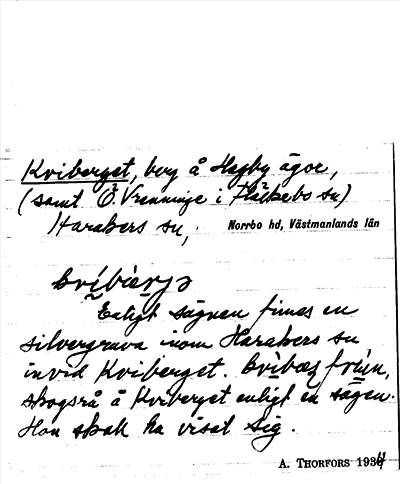 Kviberget, berg å Hegby ägor,
(samt Ö. Vrenninge i Fläckebo sn)
Harakers sn, Norrbo hd, Västmanlands län
Enligt sägnen finnes en
silvergruva inom Harakers sn
invid Kviberget.
skogsrå å Kviberget enligt en sägen.
Hon skall ha visat sig.
A. Thorfors 1934